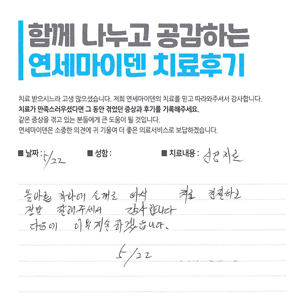 함께 나누고 공감하는
연세마이덴 치료후기
치료 받으시느라 고생 많으셨습니다. 저희 연세마이덴의 치료를 믿고 따라와주셔서 감사합니다.
치료가 만족스러우셨다면 그 동안 겪었던 증상과 후기를 기록해주세요.
같은 증상을 겪고 있는 분들에게 큰 도움이 될 것입니다.
연세마이덴은 소중한 의견에 귀 기울여 더 좋은 의료서비스로 보답하겠습니다.
■ 날짜 : 5/22 ■ 성함 : ■ 치료내용 : 신경치료
소개로 와서 치료
감사합니다
다음에 하겠습니다.
5/22